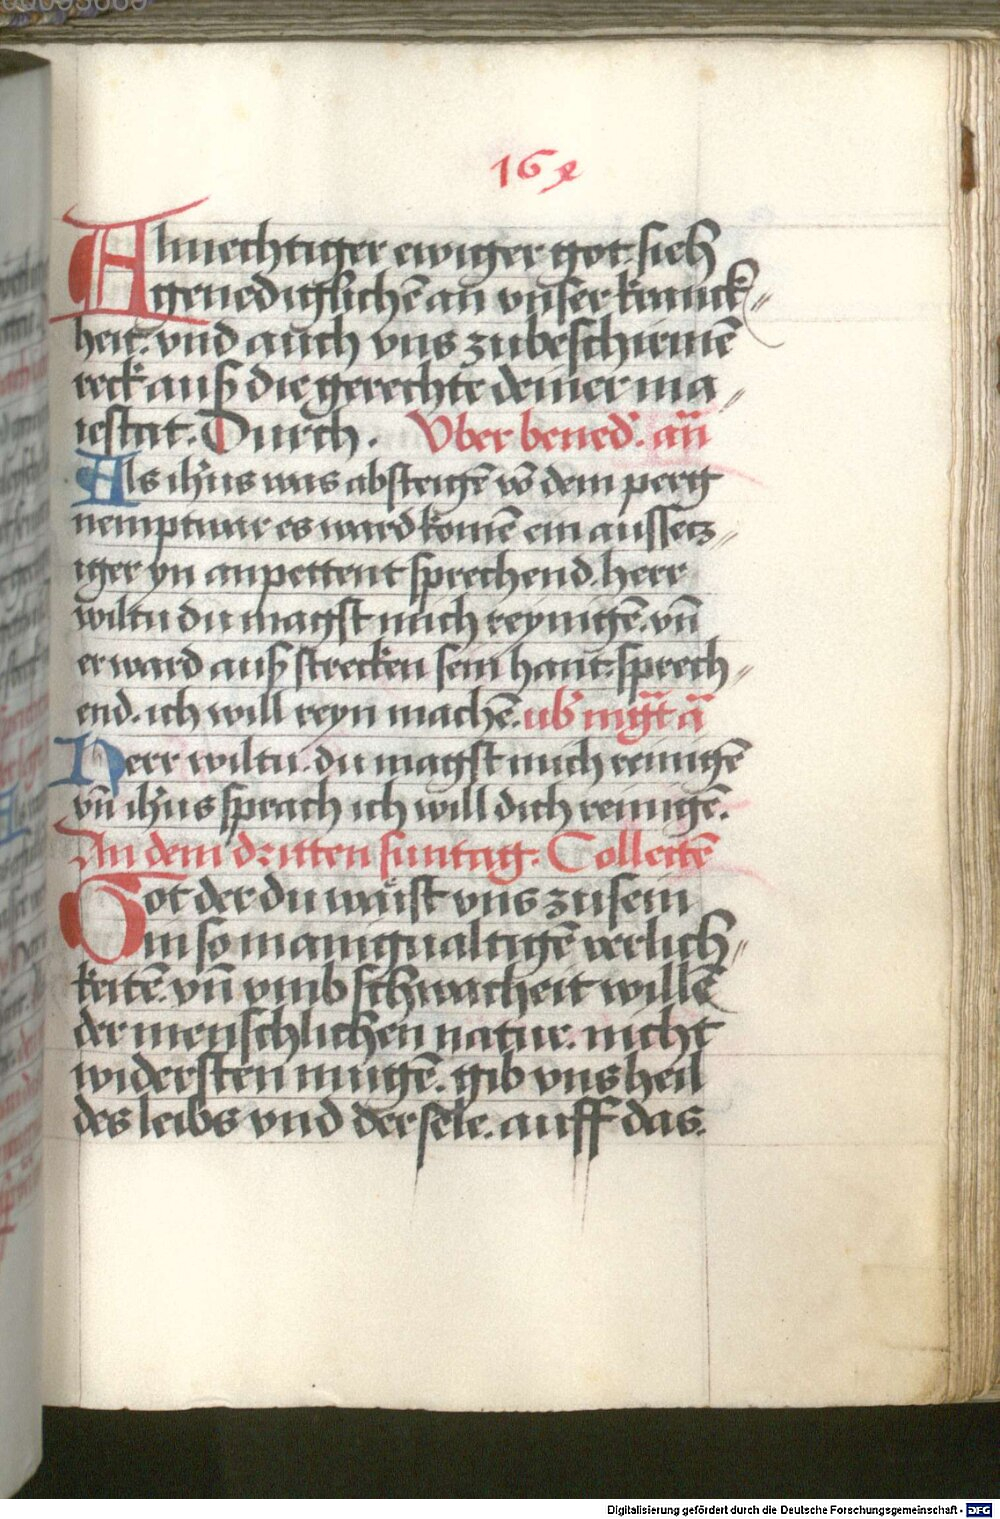 16
Almechtiger ewiger got sieh
genediglichē an vnser kranck〃
heit. vnd auch vns zubeschirmē
reck auß die gerechte deiner ma〃
iestat. Durch. Vber bened̉. an̄
Als ih̉us was absteigē vō dem perg
nempt war es ward komē ein aussetz〃
iger yn anpettent sprechend. herr
wiltu du magst mich reynigē. vn̄
er ward auß strecken sein hant. sprech〃
end. ich will reyn machē. ub̉ mg̅t a̅
Herr wiltu. du magst mich reinigē
vn̄ ih̉us sprach ich will dich reinigē.
An dem dritten suntag. Collectē
Got der du waist vns zusein
in so manigualtigē verlich〃
keitē. vn̄ vmb schwacheit willē
der menschlichen natur. nicht
widersten mugē. gib vns heil
des leibs vnd der sele. auff das.
Digitalisierung gefördert durch die Deutsche Forschungsgemeinschaft - DFG